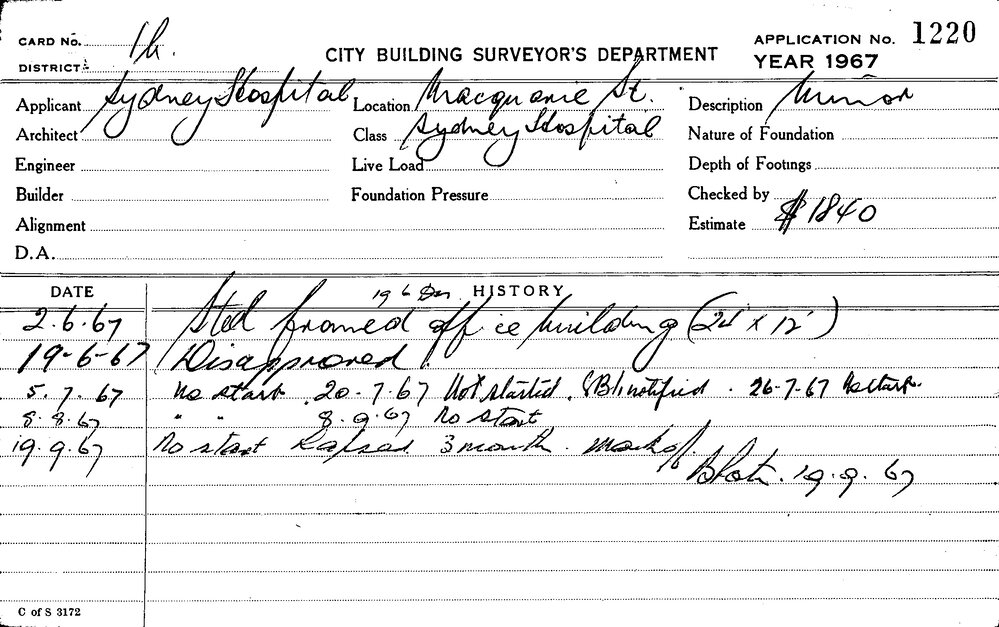 CARD No. 1h. CITY BUILDING SURVEYOR'S DEPARTMENT APPLICATION No. 1220
DISTRICT YEAR 1967
Applicant Sydney Hospital Location Macquarie St. Description Minor
Architect Class Sydney Hospital Nature of Foundation
Engineer Live Load Depth of Footings
Builder Foundation Pressure Checked by
Alignment Estimate $1840
D.A.
DATE HISTORY
2.6.67 Steel framed office building (24' x 12')
19-6-67 Disapproved.
5.7.67 No start. 20-7-67 Not started. notified. 26-7-67 No start.
8.8.67 " " 8.9.67 No start
19.9.67 No start Lapsed 3 month. Mark off.
19.9.67
C of S 3172